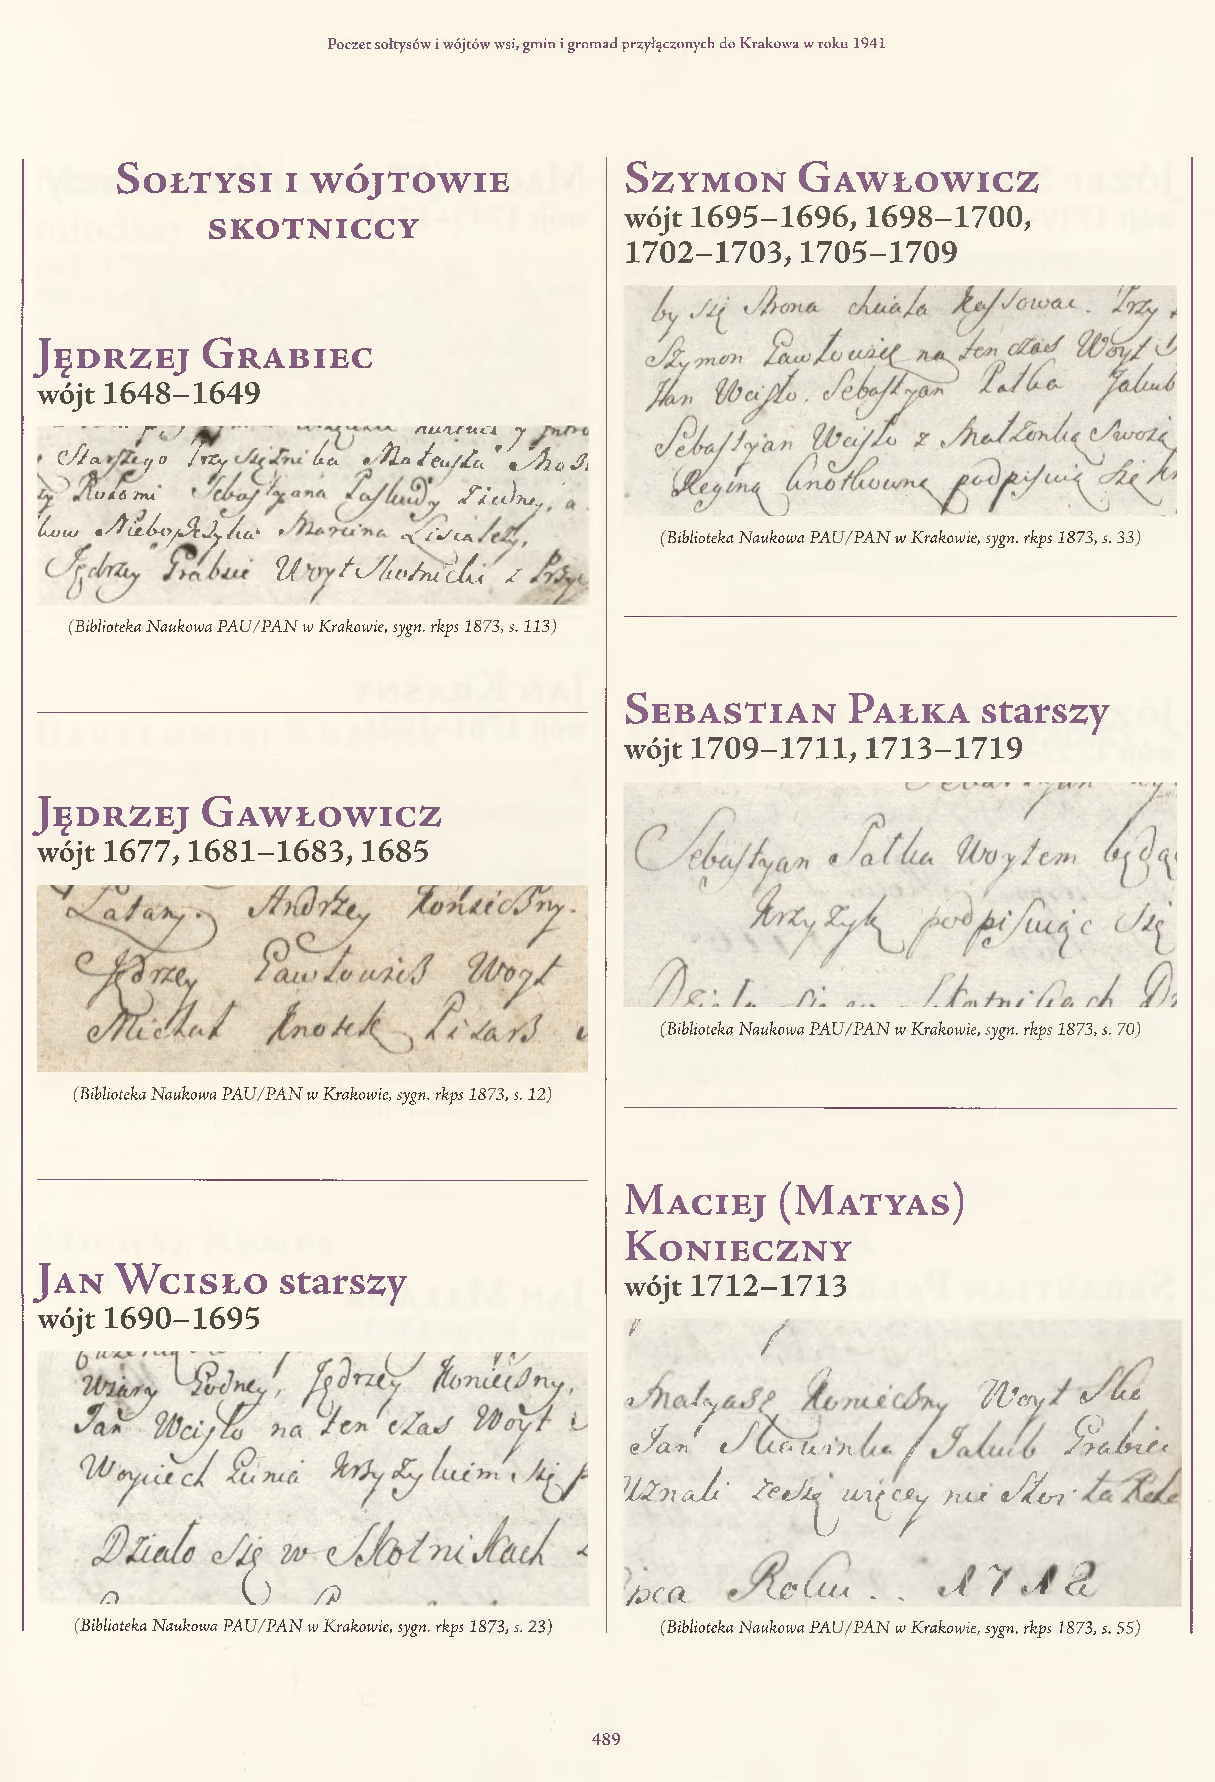 Poczet sołtysów i wójtów wsi, gmin i gromad przyłączonych do Krakowa w roku 1941
Sołtysi i wójtowie
skotniccy
Jędrzej Grabiec
wójt 1648–1649
Starszego Przysiężnika
Sebastyana
Marcina
Jędrzey Grabiec Woyt Skotnicki z
(Biblioteka Naukowa PAU/PAN w Krakowie, sygn. rkps 1873, s. 113)
Jędrzej Gawłowicz
wójt 1677, 1681–1683, 1685
Andrzey
Jędrzey Woyt
Michał Knotek Pisarz
(Biblioteka Naukowa PAU/PAN w Krakowie, sygn. rkps 1873, s. 12)
Jan Wcisło starszy
wójt 1690–1695
Wiary Godney, Jędrzey Konieczny,
Jan Wcisło na ten czas Woyt
Woyciech Krzyzykiem się
Działo się w Skotnikach
(Biblioteka Naukowa PAU/PAN w Krakowie, sygn. rkps 1873, s. 23)
Szymon Gawłowicz
wójt 1695–1696, 1698–1700,
1702–1703, 1705–1709
by się Strona chciała kassować. Przy
Szymon na ten czas Woyt
Jan Wcisło. Sebastyan Pałka Jakub
Sebastyan Wcisło z Małżonką Swoią
Reginą podpisuią się
(Biblioteka Naukowa PAU/PAN w Krakowie, sygn. rkps 1873, s. 33)
Sebastian Pałka starszy
wójt 1709–1711, 1713–1719
Sebastyan Pałka Woytem będą
Krzyzyk podpisuiąc się
(Biblioteka Naukowa PAU/PAN w Krakowie, sygn. rkps 1873, s. 70)
Maciej (Matyas)
Konieczny
wójt 1712–1713
Matyasz Konieczny Woyt
Jan Jakub
Uznali więcey nie
Roku . . 1712
(Biblioteka Naukowa PAU/PAN w Krakowie, sygn. rkps 1873, s. 55)
489